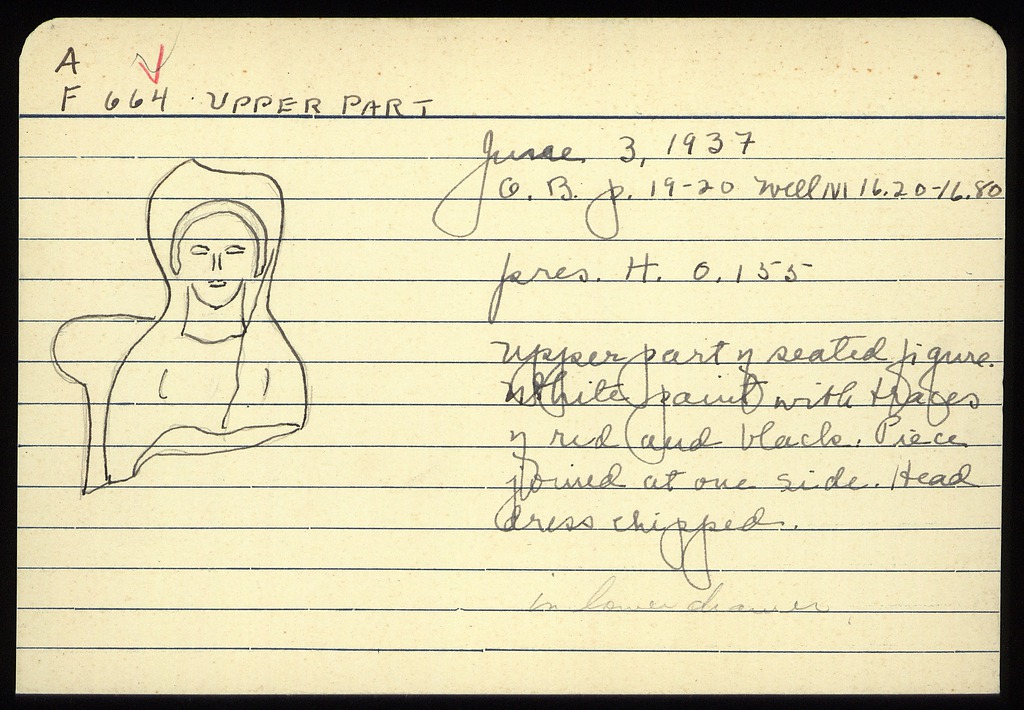 A
F 664 · UPPER PART
June 3, 1937
O. B. p. 19-20 Well M 16.20-16.80
pres. H. 0.155
Upper part of seated figure.
White paint with traces
of red and black. Piece
joined at one side. Head
dress chipped.
in lower drawer